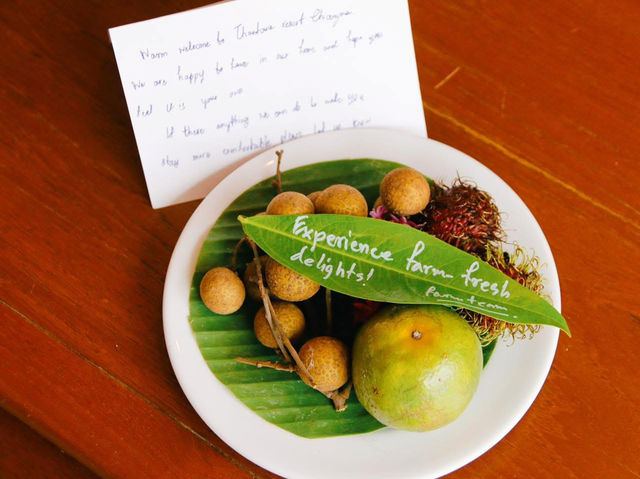 Warm welcome to Thanton resort Chiangmai
We are happy to have in our home and hope you
feel it is your own
If there anything we can do to make you
stay more comfortable please let us know
Experience farm-fresh
delights!